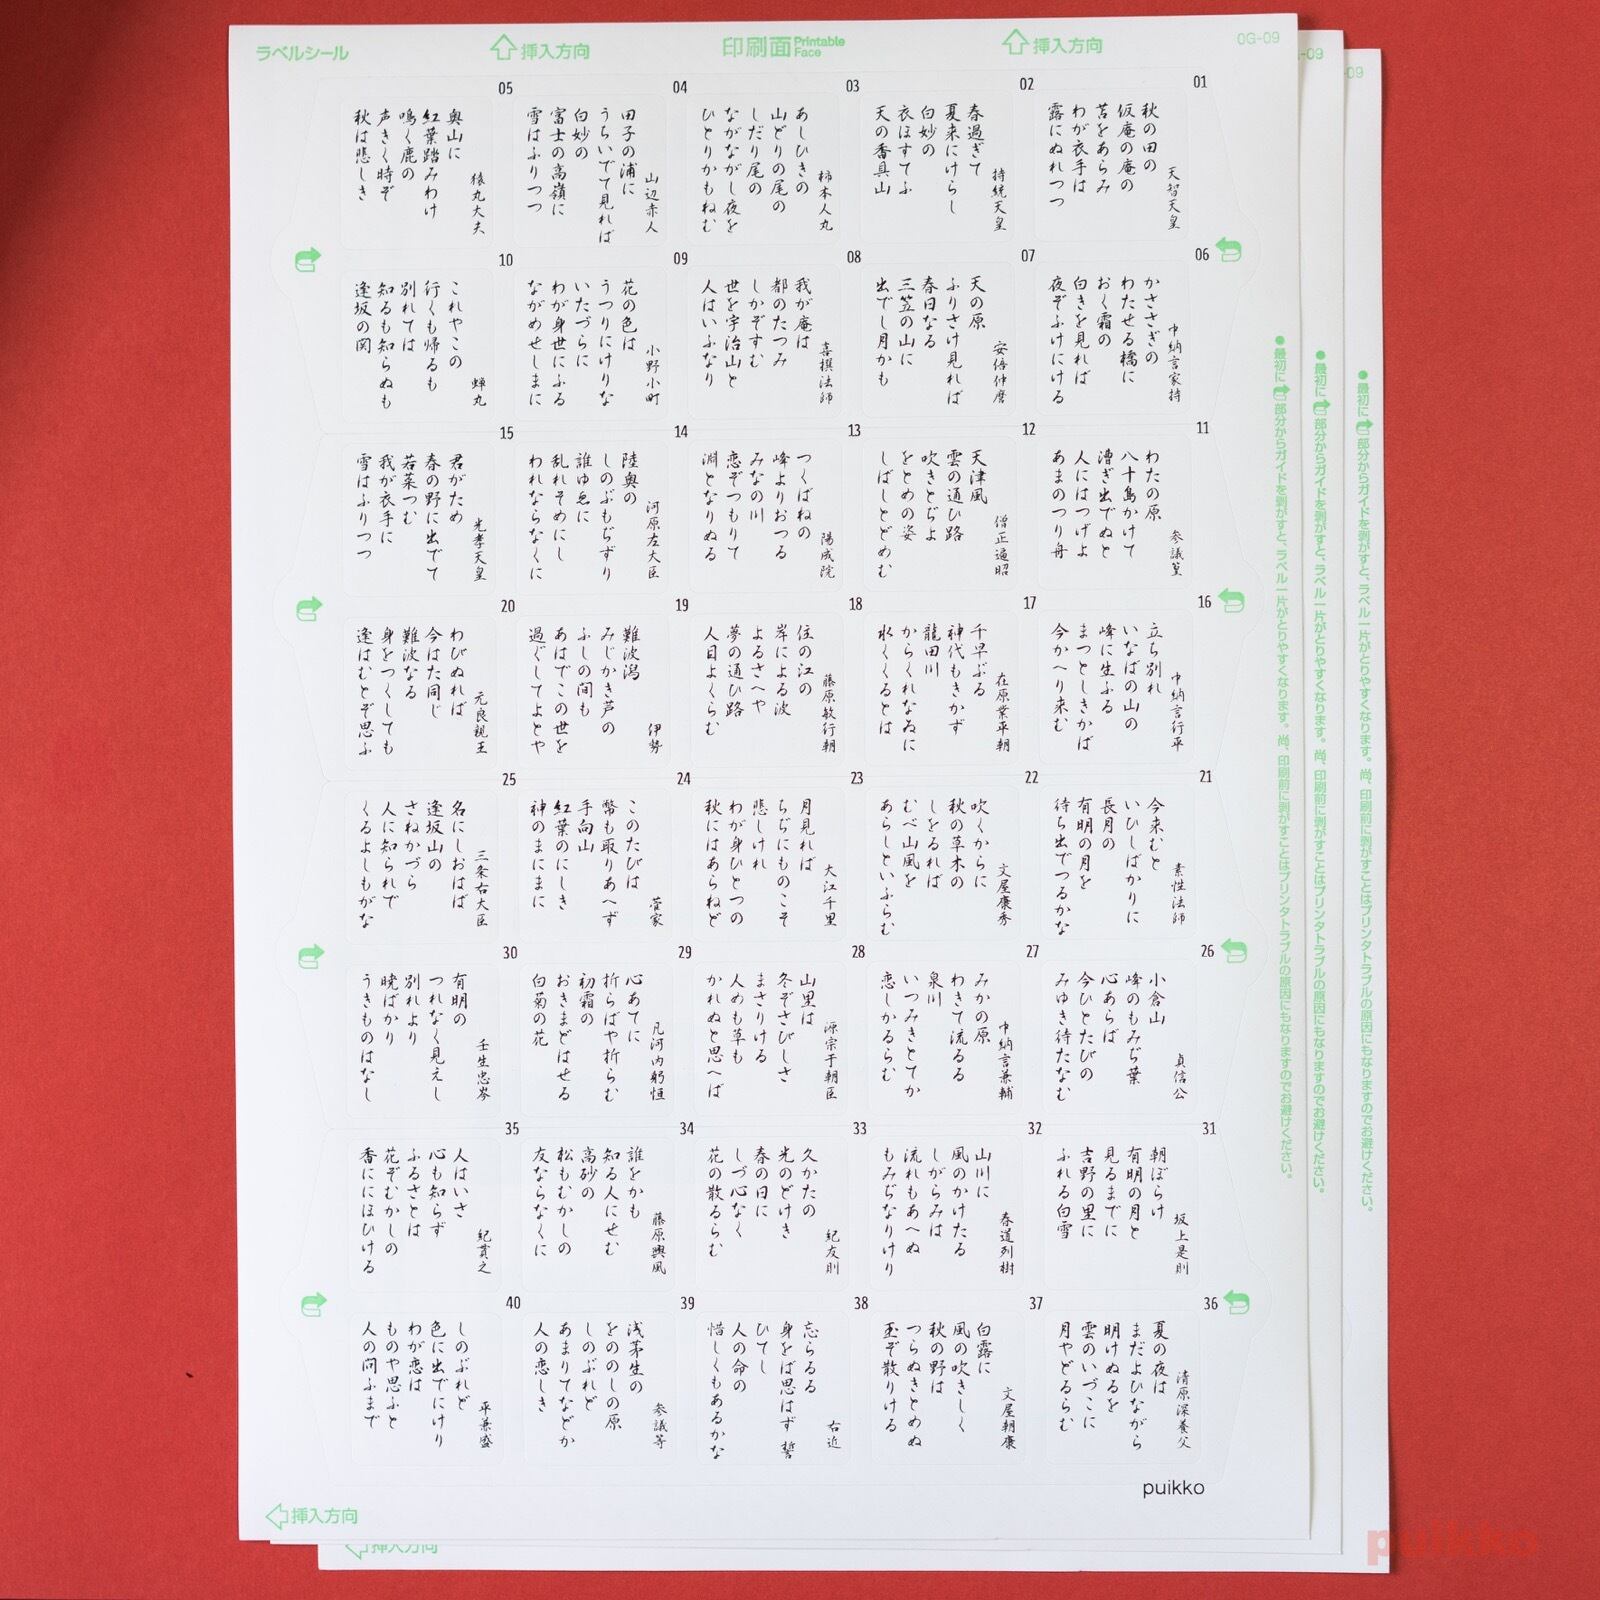 ラベルシール
挿入方向
印刷面 Printable Face
挿入方向
0G-09
-09
-09
01
天智天皇
秋の田の
仮庵の庵の
苫をあらみ
わが衣手は
露にぬれつつ
02
持統天皇
春過ぎて
夏来にけらし
白妙の
衣ほすてふ
天の香具山
03
柿本人丸
あしひきの
山どりの尾の
しだり尾の
ながながし夜を
ひとりかもねむ
04
山辺赤人
田子の浦に
うちいでて見れば
白妙の
富士の高嶺に
雪はふりつつ
05
猿丸大夫
奥山に
紅葉踏みわけ
鳴く鹿の
声きく時ぞ
秋は悲しき
06
中納言家持
かささぎの
わたせる橋に
おく霜の
白きを見れば
夜ぞふけにける
07
安倍仲麿
天の原
ふりさけ見れば
春日なる
三笠の山に
出でし月かも
08
喜撰法師
我が庵は
都のたつみ
しかぞすむ
世を宇治山と
人はいふなり
09
小野小町
花の色は
うつりにけりな
いたづらに
わが身世にふる
ながめせしまに
10
蝉丸
これやこの
行くも帰るも
別れては
知るも知らぬも
逢坂の関
11
参議篁
わたの原
八十島かけて
漕ぎ出でぬと
人にはつげよ
あまのつり舟
12
僧正遍昭
天津風
雲の通ひ路
吹きとぢよ
をとめの姿
しばしとどめむ
13
陽成院
つくばねの
峰よりおつる
みなの川
恋ぞつもりて
淵となりぬる
14
河原左大臣
陸奥の
しのぶもぢずり
誰ゆゑに
乱れそめにし
われならなくに
15
光孝天皇
君がため
春の野に出でて
若菜つむ
我が衣手に
雪はふりつつ
16
中納言行平
立ち別れ
いなばの山の
峰に生ふる
まつとしきかば
今かへり来む
17
在原業平朝
千早ぶる
神代もきかず
龍田川
からくれなゐに
水くくるとは
18
藤原敏行朝
住の江の
岸による波
よるさへや
夢の通ひ路
人目よくらむ
19
伊勢
難波潟
みじかき芦の
ふしの間も
あはでこの世を
過ぐしてよとや
20
元良親王
わびぬれば
今はた同じ
難波なる
身をつくしても
逢はむとぞ思ふ
21
素性法師
今来むと
いひしばかりに
長月の
有明の月を
待ち出でつるかな
22
文屋康秀
吹くからに
秋の草木の
しをるれば
むべ山風を
あらしといふらむ
23
大江千里
月見れば
ちぢにものこそ
悲しけれ
わが身ひとつの
秋にはあらねど
24
菅家
このたびは
幣も取りあへず
手向山
紅葉のにしき
神のまにまに
25
三条右大臣
名にしおはば
逢坂山の
さねかづら
人に知られで
くるよしもがな
26
貞信公
小倉山
峰のもみぢ葉
心あらば
今ひとたびの
みゆき待たなむ
27
中納言兼輔
みかの原
わきて流るる
泉川
いつみきとてか
恋しかるらむ
28
源宗于朝臣
山里は
冬ぞさびしさ
まさりける
人めも草も
かれぬと思へば
29
凡河内躬恒
心あてに
折らばや折らむ
初霜の
おきまどはせる
白菊の花
30
壬生忠岑
有明の
つれなく見えし
別れより
暁ばかり
うきものはなし
31
坂上是則
朝ぼらけ
有明の月と
見るまでに
吉野の里に
ふれる白雪
32
春道列樹
山川に
風のかけたる
しがらみは
流れもあへぬ
もみぢなりけり
33
紀友則
久かたの
光のどけき
春の日に
しづ心なく
花の散るらむ
34
藤原興風
誰をかも
知る人にせむ
高砂の
松もむかしの
友ならなくに
35
紀貫之
人はいさ
心も知らず
ふるさとは
花ぞむかしの
香ににほひける
36
清原深養父
夏の夜は
まだよひながら
明けぬるを
雲のいづこに
月やどるらむ
37
文屋朝康
白露に
風の吹きしく
秋の野は
つらぬきとめぬ
玉ぞ散りける
38
右近
忘らるる
身をば思はず 誓
ひてし
人の命の
惜しくもあるかな
39
参議等
浅茅生の
をののしの原
しのぶれど
あまりてなどか
人の恋しき
40
平兼盛
しのぶれど
色に出でにけり
わが恋は
ものや思ふと
人の問ふまで
puikko
挿入方向
挿入方向
●最初に部分からガイドを剥がすと、ラベル一片がとりやすくなります。尚、印刷前に剥がすことはプリンタトラブルの原因にもなりますのでお避けください。
●最初に部分からガイドを剥がすと、ラベル一片がとりやすくなります。尚、印刷前に剥がすことはプリンタトラブルの原因にもなりますのでお避けください。
●最初に部分からガイドを剥がすと、ラベル一片がとりやすくなります。尚、印刷前に剥がすことはプリンタトラブルの原因にもなりますのでお避けください。
puikko